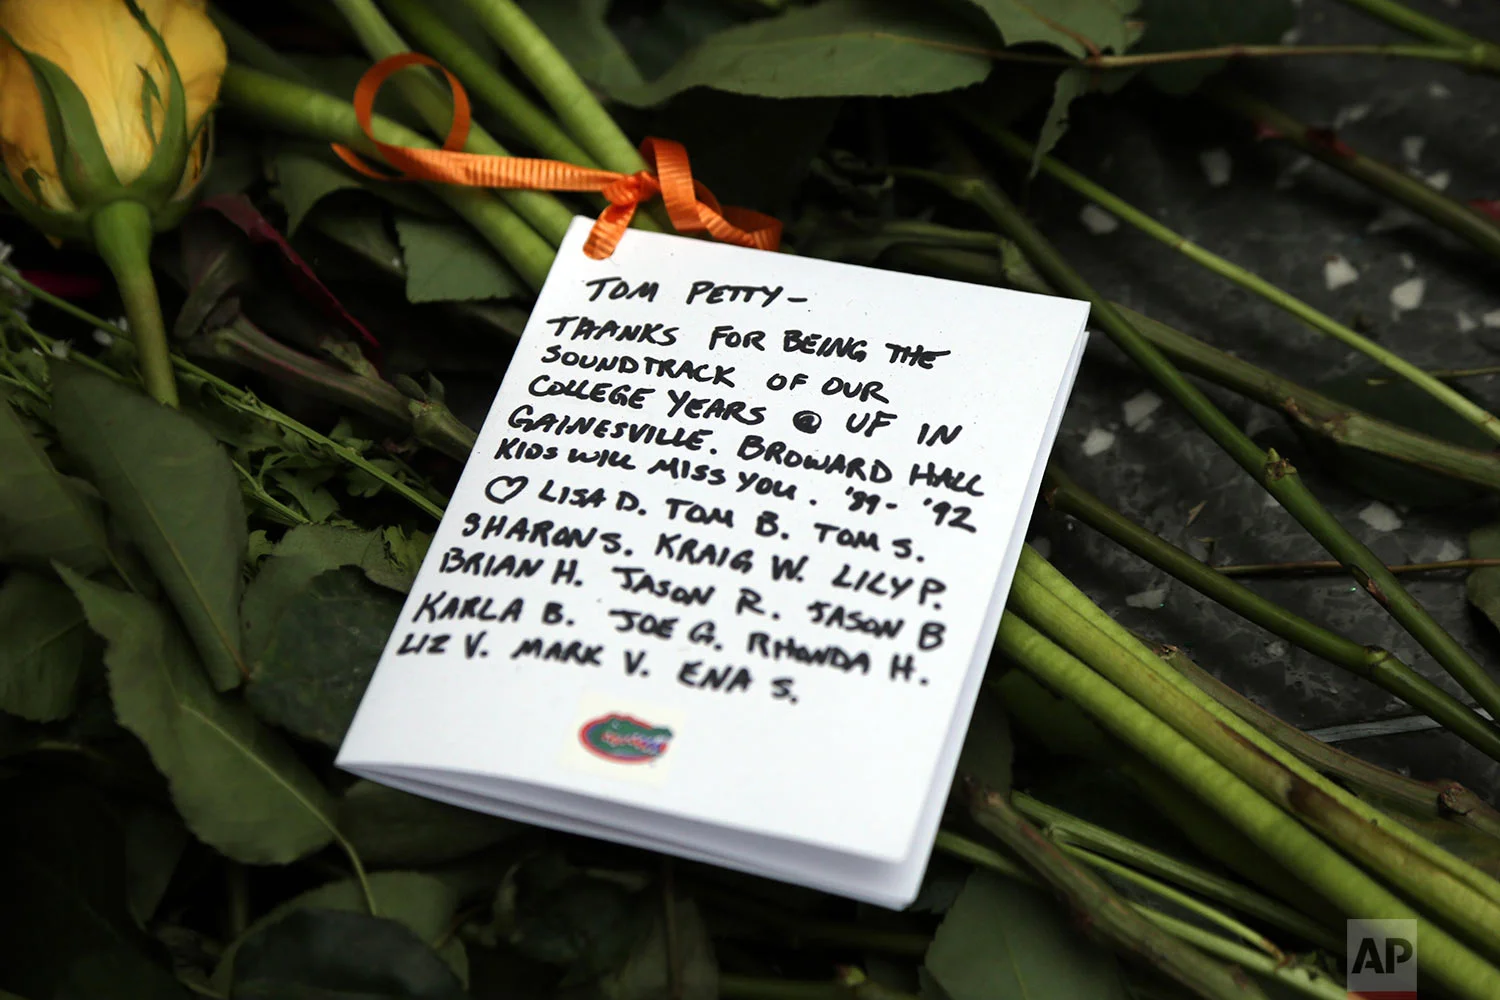 TOM PETTY-
THANKS FOR BEING THE
SOUNDTRACK OF OUR
COLLEGE YEARS @ UF IN
GAINESVILLE. BROWARD HALL
KIDS WILL MISS YOU. '89- '92
♡ LISA D. TOM B. TOM S.
SHARON S. KRAIG W. LILY P.
BRIAN H. JASON R. JASON B
KARLA B. JOE G. RHONDA H.
LIZ V. MARK V. ENA S.
AP